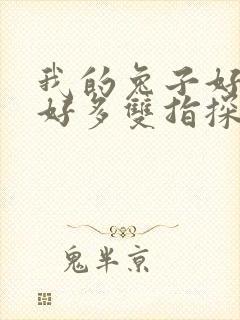 我的兔子好
好多雙指探
鬼半京